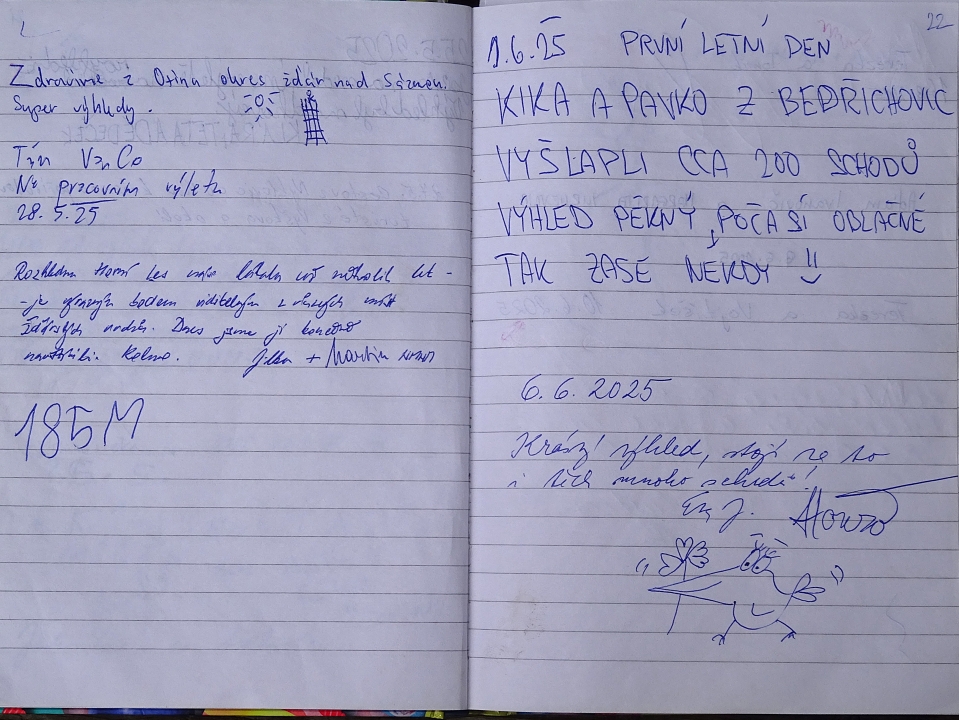 Zdravíme z Otína okres Žďár nad Sázavou.
Super výhledy.
Tým
Na pracovním výletu
28.5.25
Rozhledna Horní Les let -
- je výrazným bodem viditelným z různých míst
Žďárských vrchů. Dnes jsme ji konečně
navštívili. + Martin
185M
1.6.25 PRVNÍ LETNÍ DEN
KIKA A PAVKO Z BEDŘICHOVIC
VYŠLAPLI CCA 200 SCHODŮ
VÝHLED PĚKNÝ, POČASÍ OBLAČNÉ
TAK ZASE NĚKDY !!
6.6.2025
Krásný výhled, stojí za to
i těch mnoho schodů!
22